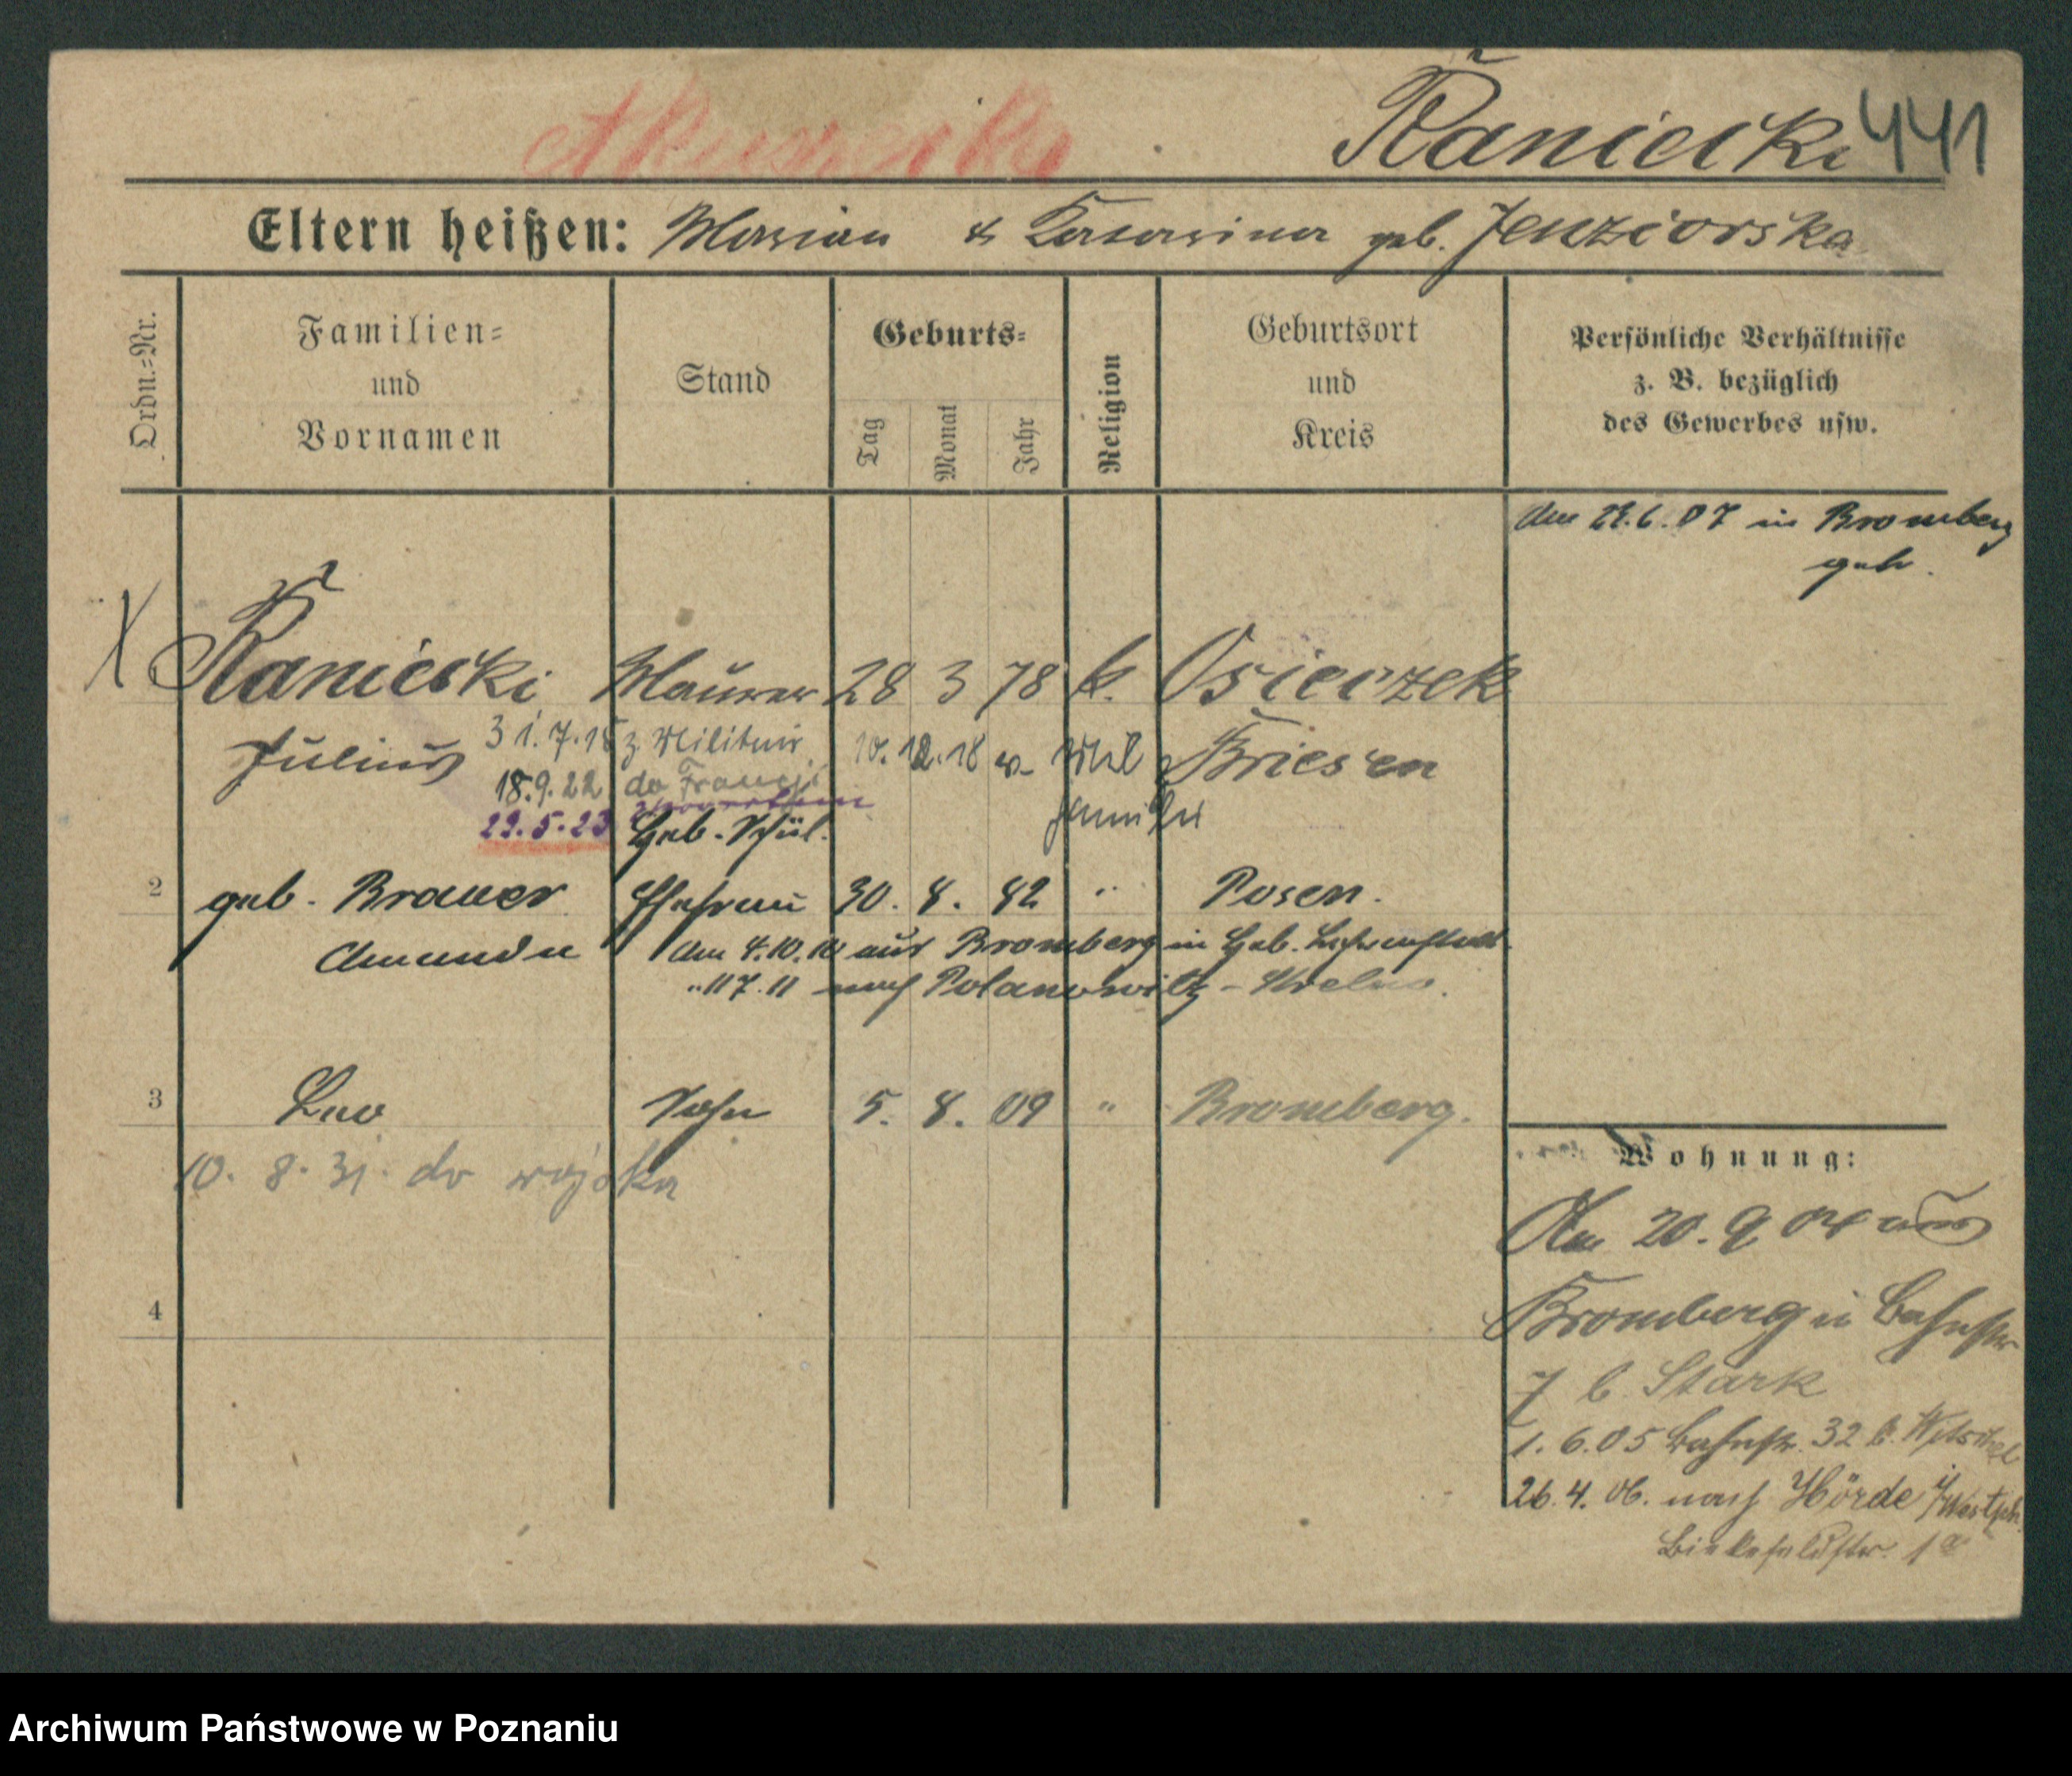 Akuszerka
Kaniecki 441
Eltern heißen: Marian & Katarina geb. Jenziorska
Ordn.-Nr.
Familien-
und
Vornamen
Stand
Geburts-
Tag
Monat
Jahr
Religion
Geburtsort
und
Kreis
Persönliche Verhältnisse
z. B. bezüglich
des Gewerbes usw.
in Bromberg
geh.
Kaniecki Maurer 28 3 78 k. Osieczek
Julius 31.7.15 z. Militair 10.12.18 v. Mil Briesen
18.9.22 do Francji
Familie
22.5.23 Geb. Schül.
2 geb. Brauer Ehefrau 30. 8. 82 " Posen.
Amanda am 4.10.10 aus Bromberg in Geb. Lehranstalt
" 11 7.11 nach Polanowitz -
3 Leo Sohn 5. 8. 09 " Bromberg.
10. 8. 31. do wojska
4
Wohnung:
Am 20. 9 04 aus
Bromberg in Bahnstr
7 b. Stark
1. 6. 05 Bahnstr. 32 b.
26. 4. 06. nach Hörde i/Westph.
1a
Archiwum Państwowe w Poznaniu